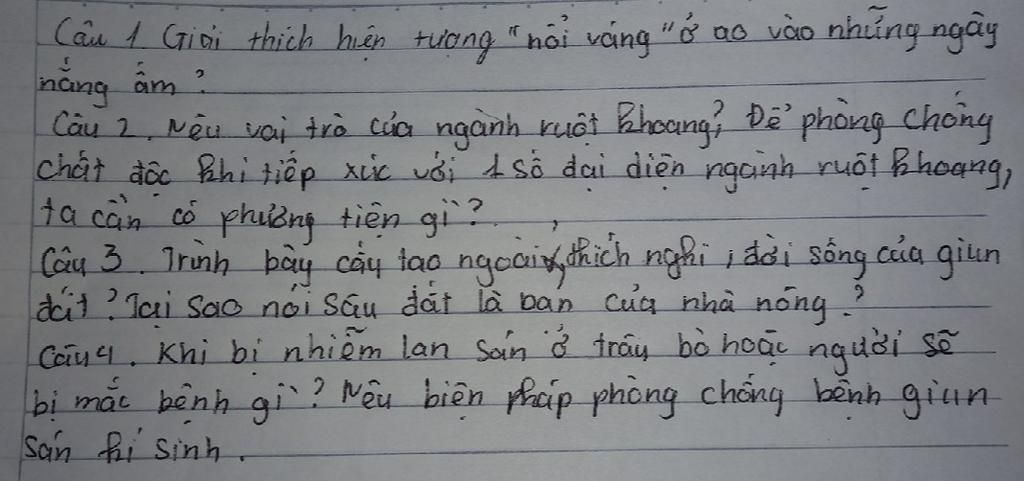 Câu 1 Giải thích hiện tượng "nổi váng" ở ao vào những ngày
nắng ấm?
Câu 2. Nêu vai trò của ngành ruột khoang? Để phòng chống
chất độc khi tiếp xúc với 1 số đại diện ngành ruột khoang,
ta cần có phương tiện gì?
Câu 3. Trình bày cấu tạo ngoài thích nghi, đời sống của giun
đất? Tại sao nói sâu đất là bạn của nhà nông?
Câu 4. Khi bị nhiễm lan sán ở trâu bò hoặc người sẽ
bị mắc bệnh gì? Nêu biện pháp phòng chống bệnh giun
sán kí sinh.